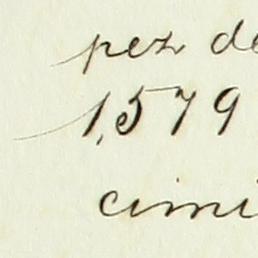 pez de
1,579
cimi